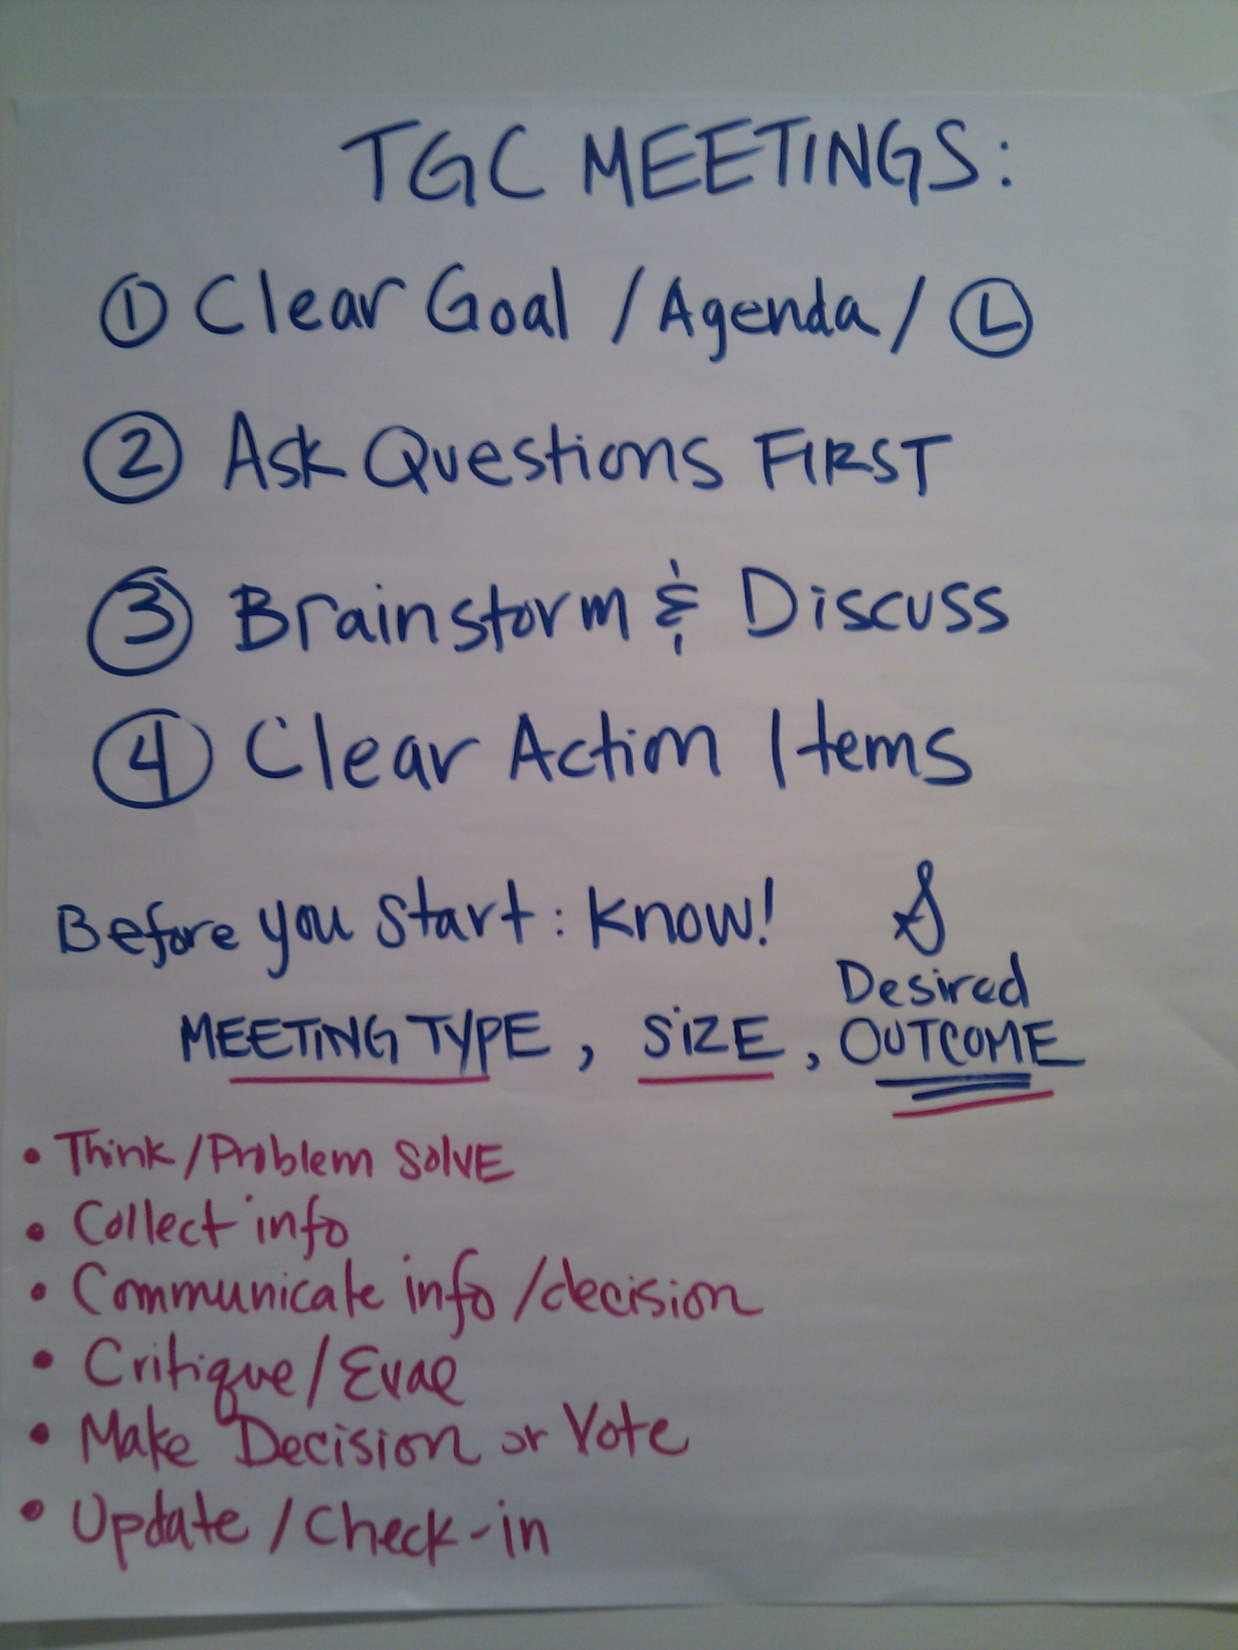 TGC MEETINGS:
① Clear Goal / Agenda / Ⓛ
② Ask Questions FIRST
③ Brainstorm & Discuss
④ Clear Action Items
Before you start: Know!
MEETING TYPE, SIZE, Desired
OUTCOME
• Think/Problem SOLVE
• Collect info
• Communicate info/decision
• Critique/Eval
• Make Decision or Vote
• Update/Check-in